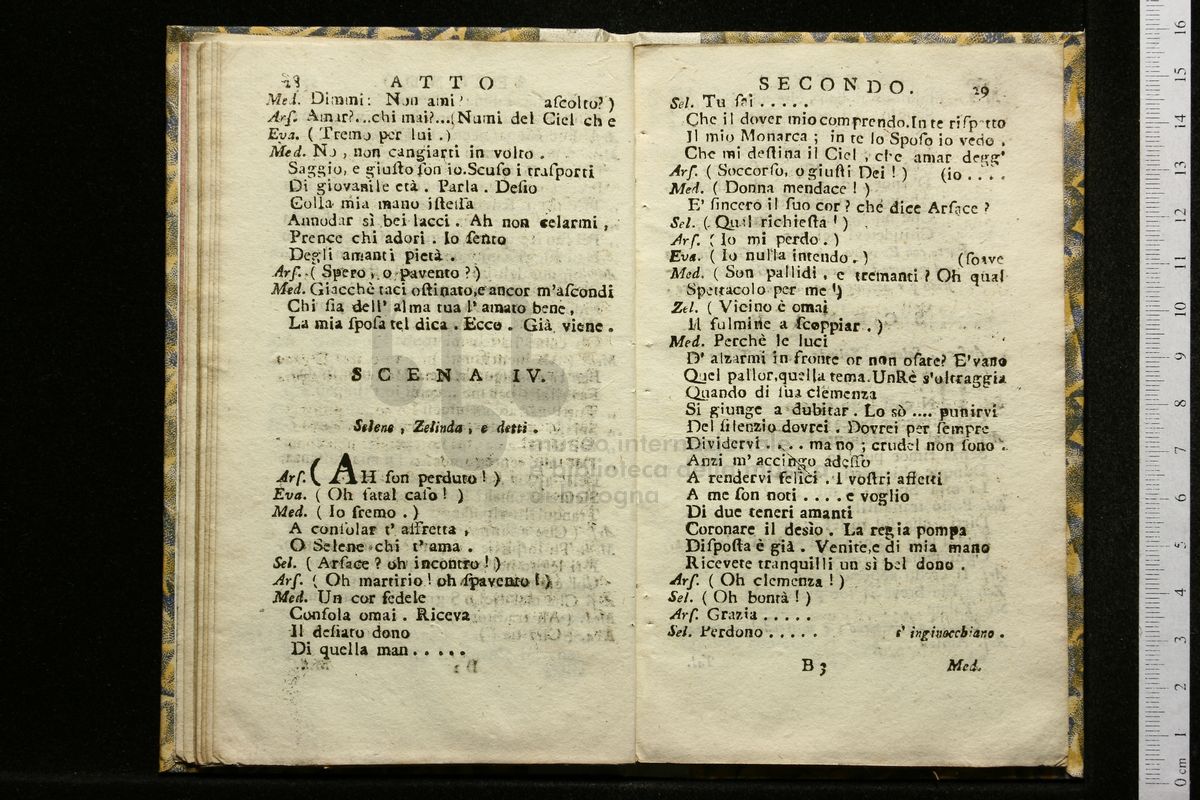 28 ATTO
Med. Dimmi: Non ami? aſcolto?)
Arſ. Amar?...chi mai?...(Numi del Ciel che
Eva. (Tremo per lui.)
Med. No, non cangiarti in volto.
Saggio, e giuſto ſon io.Scuſo i traſporti
Di giovanile età. Parla. Deſio
Colla mia mano iſteſſa
Annodar sì bei lacci. Ah non celarmi,
Prence chi adori. Io ſento
Degli amanti pietà.
Arſ. (Spero, o pavento?)
Med. Giacchè taci oſtinato,e ancor m'aſcondi
Chi ſia dell' alma tua l' amato bene,
La mia ſpoſa tel dica. Ecco. Già viene.
SCENA IV.
Selene, Zelinda, e detti.
Arſ. (AH ſon perduto!)
Eva. (Oh fatal caſo!)
Med. (Io fremo.)
A conſolar t' affretta,
O Selene chi t'ama.
Sel. (Arſace? oh incontro!)
Arſ. (Oh martirio! oh ſpavento!)
Med. Un cor fedele
Conſola omai. Riceva
Il deſiato dono
Di quella man.....
SECONDO. 29
Sel. Tu ſei.....
Che il dover mio comprendo.In te riſpetto
Il mio Monarca; in te lo Spoſo io vedo.
Che mi deſtina il Ciel, che amar degg'
Arſ. (Soccorſo, o giuſti Dei!) (io....
Med. (Donna mendace!)
E' ſincero il ſuo cor? che dice Arſace?
Sel. (Qual richieſta!)
Arſ. (Io mi perdo.)
Eva. (Io nulla intendo.) (ſoave
Med. (Son pallidi, e tremanti? Oh qual
Spettacolo per me!)
Zel. (Vicino è omai
Il fulmine a ſcoppiar.)
Med. Perchè le luci
D' alzarmi in fronte or non oſate? E'vano
Quel pallor,quella tema.UnRè s'oltraggia
Quando di ſua clemenza
Si giunge a dubitar. Lo sò .... punirvi
Del ſilenzio dovrei. Dovrei per ſempre
Dividervi.... ma no; crudel non ſono.
Anzi m' accingo adeſſo
A rendervi felici. I voſtri affetti
A me ſon noti.... e voglio
Di due teneri amanti
Coronare il desìo. La regia pompa
Diſpoſta è già. Venite,e di mia mano
Ricevete tranquilli un sì bel dono.
Arſ. (Oh clemenza!)
Sel. (Oh bontà!)
Arſ. Grazia.....
Sel. Perdono..... s' inginocchiano.
B 3 Med.